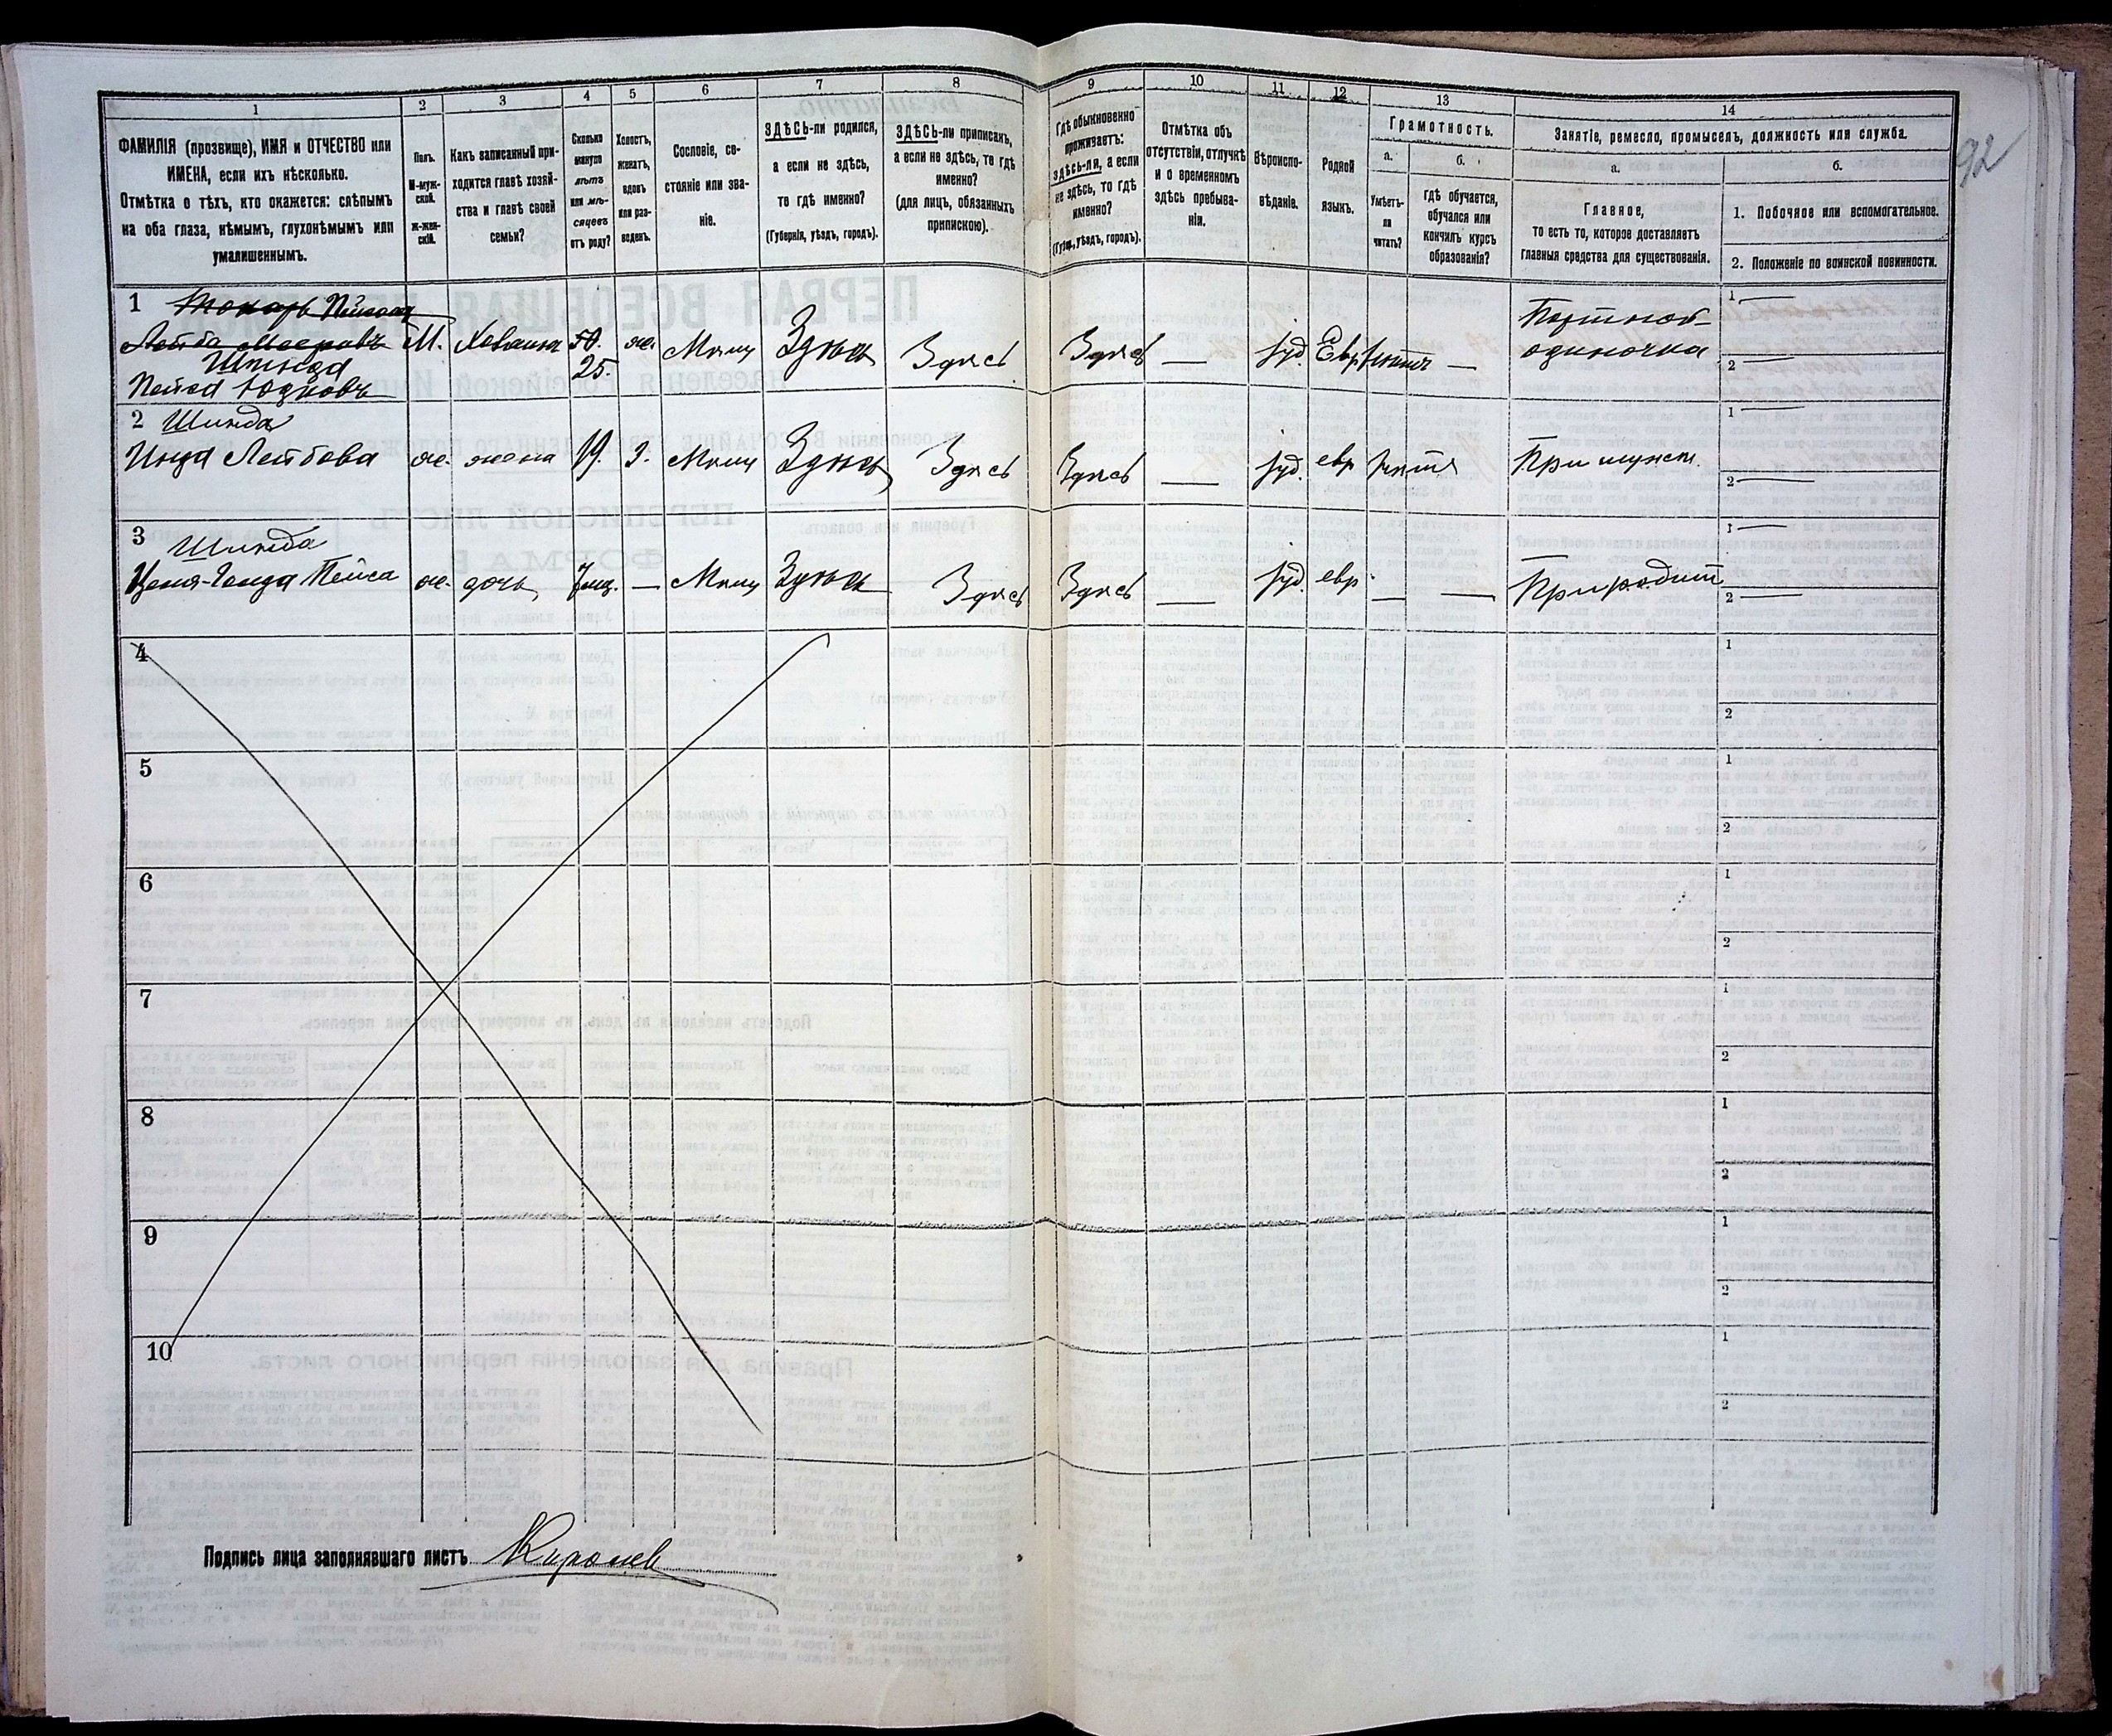 1
2
3
4
5
6
7
8
9
10
11
12
13
14
ФАМИЛІЯ (прозвище), ИМЯ и ОТЧЕСТВО или
ИМЕНА, если ихъ нѣсколько.
Отмѣтка о тѣхъ, кто окажется: слѣпымъ
на оба глаза, нѣмымъ, глухонѣмымъ или
умалишеннымъ.
Полъ.
М-муж-
ской.
ж-жен-
скій.
Какъ записанный при-
ходится главѣ хозяй-
ства и главѣ своей
семьи?
Сколько
минуло
лѣтъ
или мѣ-
сяцевъ
отъ роду?
Холостъ,
женатъ,
вдовъ
или раз-
веденъ.
Сословіе, со-
стояніе или зва-
ніе.
ЗДѢСЬ-ли родился,
а если не здѣсь,
то гдѣ именно?
(Губернія, уѣздъ, городъ).
ЗДѢСЬ-ли приписанъ,
а если не здѣсь, то гдѣ
именно?
(для лицъ, обязанныхъ
припискою).
Гдѣ обыкновенно
проживаетъ:
здѣсь-ли, а если
не здѣсь, то гдѣ
именно?
(Губ., уѣздъ, городъ).
Отмѣтка объ
отсутствіи, отлучкѣ
и о временномъ
здѣсь пребыва-
ніи.
Вѣроиспо-
вѣданіе.
Родной
языкъ.
Грамотность.
а.
Умѣетъ-
ли
читать?
б.
гдѣ обучается,
обучался или
кончилъ курсъ
образованія?
Занятіе, ремесло, промыселъ, должность или служба.
а.
Главное,
то есть то, которое доставляетъ
главныя средства для существованія.
б.
1. Побочное или вспомогательное.
2. Положеніе по воинской повинности.
92
1 Токарь
Лейба Мееровъ М. Хозяинъ 50. же. Мѣщ Здѣсь Здѣсь Здѣсь — іуд. Евр —
Шинда
Пейса 25.
Портной
одиночка
1 —
2 —
2 Шинда
Лейбова же. жена 19. З. Мѣщ Здѣсь Здѣсь Здѣсь — іуд. евр При мужѣ.
1 —
2 —
3 Шинда
Пейса же. дочь 7 мц. — Мѣщ Здѣсь Здѣсь Здѣсь — іуд. евр. — — При родит
1 —
2 —
4
1
2
5
1
2
6
1
2
7
1
2
8
1
2
9
1
2
10
1
2
Подпись лица заполнявшаго листъ